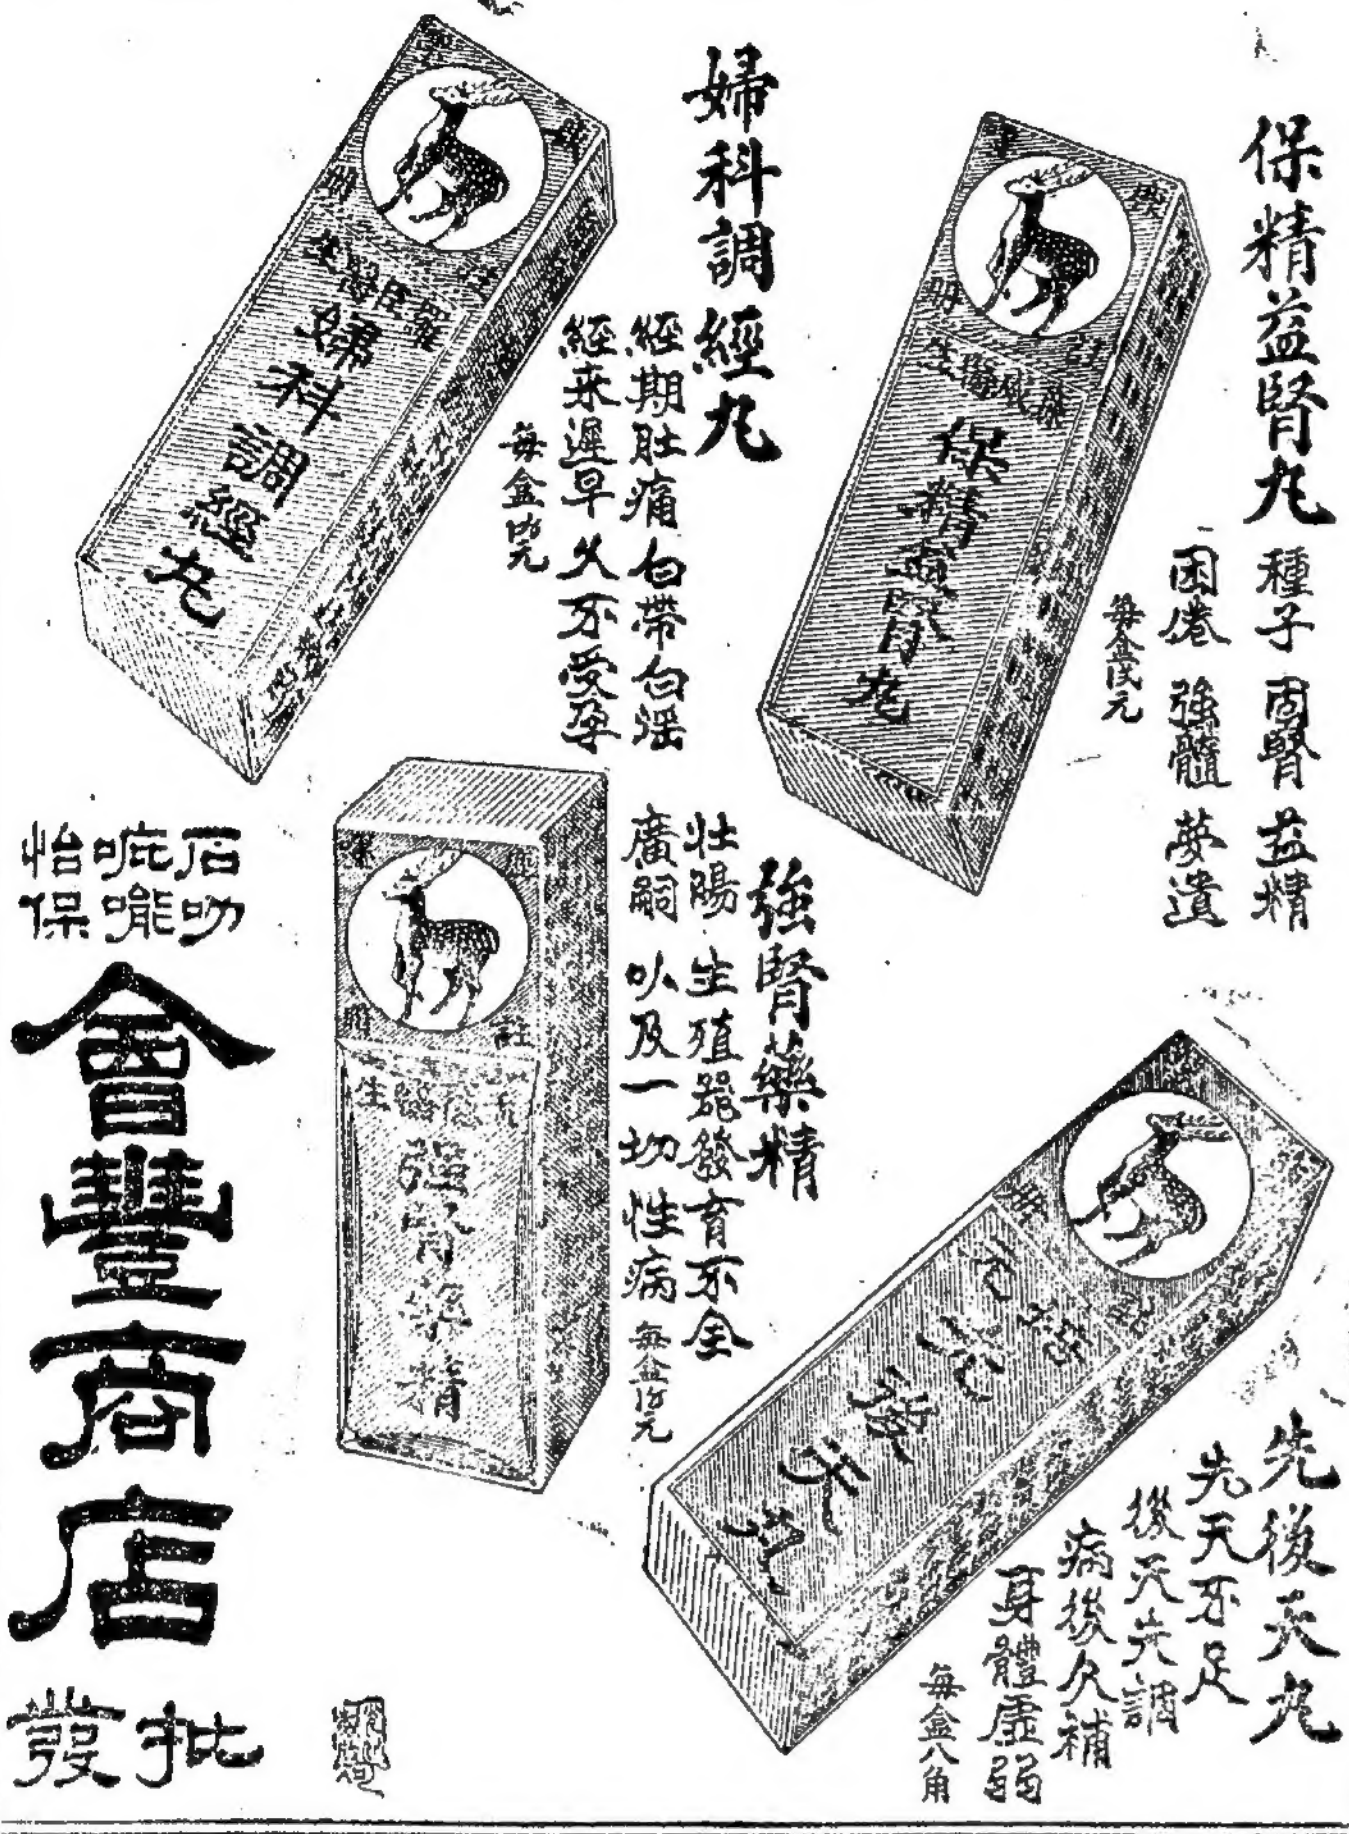 保精益腎丸
種子 固腎 益精
困倦 強髓 夢遺
每盒元
婦科調經丸
經期肚痛 白帶白淫
經來遲早 久不受孕
每盒元
婦科調經丸
保精益腎丸
強腎藥精
壯陽 生殖器發育不全
廣嗣 以及一切性病
每盒元
生
強腎藥精
先後天丸
先天不足
後天失調
病後久補
身體虛弱
每盒八角
石叻
吡嚨
怡保
會豐商店
批發